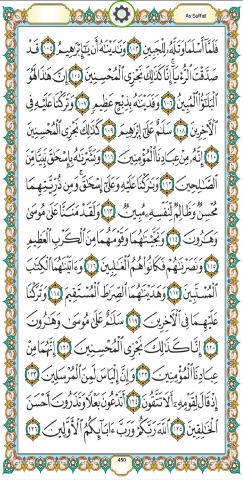 As Saffat
فَلَمَّآ أَسْلَمَا وَتَلَّهُۥ لِلْجَبِينِ ١٠٣ وَنَٰدَيْنَٰهُ أَن يَٰٓإِبْرَٰهِيمُ ١٠٤ قَدْ
صَدَّقْتَ ٱلرُّءْيَآ إِنَّا كَذَٰلِكَ نَجْزِى ٱلْمُحْسِنِينَ ١٠٥ إِنَّ هَٰذَا لَهُوَ
ٱلْبَلَٰٓؤُا۟ ٱلْمُبِينُ ١٠٦ وَفَدَيْنَٰهُ بِذِبْحٍ عَظِيمٍ ١٠٧ وَتَرَكْنَا عَلَيْهِ فِى
ٱلْءَاخِرِينَ ١٠٨ سَلَٰمٌ عَلَىٰٓ إِبْرَٰهِيمَ ١٠٩ كَذَٰلِكَ نَجْزِى ٱلْمُحْسِنِينَ
١١٠ إِنَّهُۥ مِنْ عِبَادِنَا ٱلْمُؤْمِنِينَ ١١١ وَبَشَّرْنَٰهُ بِإِسْحَٰقَ نَبِيًّا مِّنَ
ٱلصَّٰلِحِينَ ١١٢ وَبَٰرَكْنَا عَلَيْهِ وَعَلَىٰٓ إِسْحَٰقَ وَمِن ذُرِّيَّتِهِمَا
مُحْسِنٌ وَظَالِمٌ لِّنَفْسِهِۦ مُبِينٌ ١١٣ وَلَقَدْ مَنَنَّا عَلَىٰ مُوسَىٰ
وَهَٰرُونَ ١١٤ وَنَجَّيْنَٰهُمَا وَقَوْمَهُمَا مِنَ ٱلْكَرْبِ ٱلْعَظِيمِ
١١٥ وَنَصَرْنَٰهُمْ فَكَانُوا۟ هُمُ ٱلْغَٰلِبِينَ ١١٦ وَءَاتَيْنَٰهُمَا ٱلْكِتَٰبَ
ٱلْمُسْتَبِينَ ١١٧ وَهَدَيْنَٰهُمَا ٱلصِّرَٰطَ ٱلْمُسْتَقِيمَ ١١٨ وَتَرَكْنَا
عَلَيْهِمَا فِى ٱلْءَاخِرِينَ ١١٩ سَلَٰمٌ عَلَىٰ مُوسَىٰ وَهَٰرُونَ
١٢٠ إِنَّا كَذَٰلِكَ نَجْزِى ٱلْمُحْسِنِينَ ١٢١ إِنَّهُمَا مِنْ
عِبَادِنَا ٱلْمُؤْمِنِينَ ١٢٢ وَإِنَّ إِلْيَاسَ لَمِنَ ٱلْمُرْسَلِينَ ١٢٣
إِذْ قَالَ لِقَوْمِهِۦٓ أَلَا تَتَّقُونَ ١٢٤ أَتَدْعُونَ بَعْلًا وَتَذَرُونَ أَحْسَنَ
ٱلْخَٰلِقِينَ ١٢٥ ٱللَّهَ رَبَّكُمْ وَرَبَّ ءَابَآئِكُمُ ٱلْأَوَّلِينَ ١٢٦
450